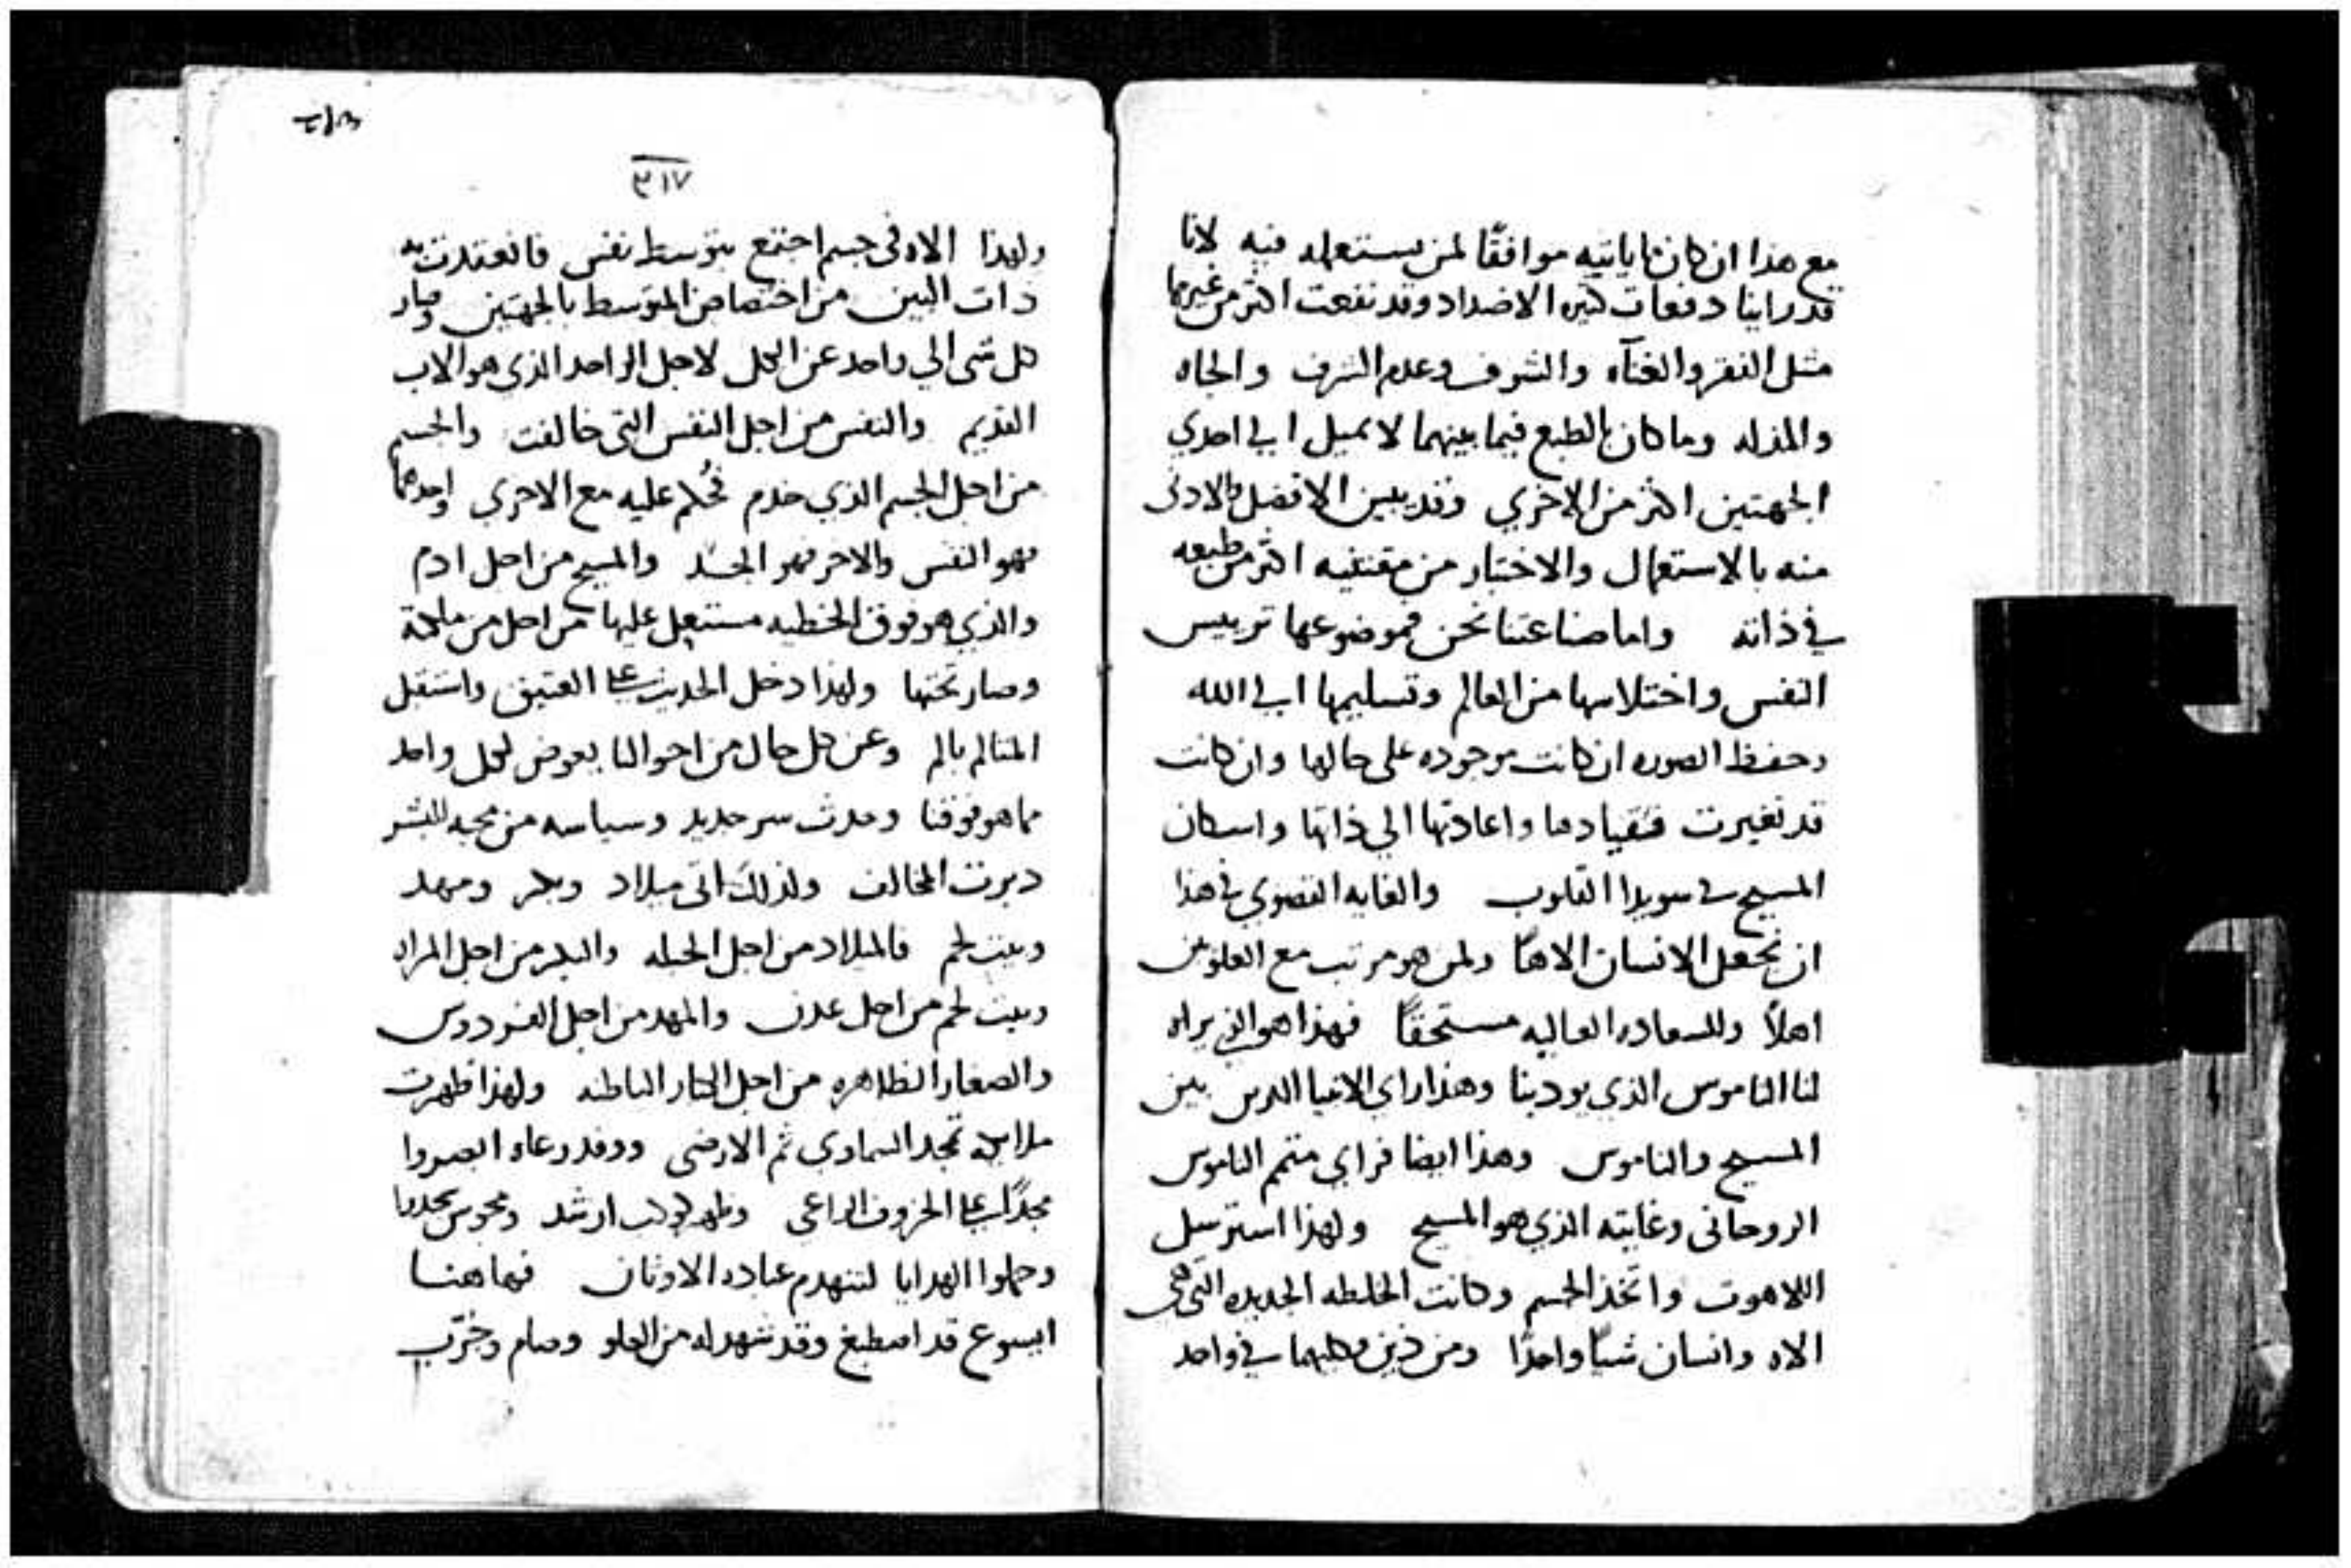 مع هذا ان كان ما ياتيه موافقًا لمن يستعمله فيه لانا
قد راينا دفعات كثيره الاضداد وقد نفعت اكثر من غيرها
مثل الفقر والغنآء والشرف وعدم الشرف والجاه
والمذله وما كان بالطبع فيما بينهما لا يميل الي احدي
الجهتين اكثر من الاخري وقد يبين الافضل والادنى
منه بالاستعمال والاختبار من مقتنيه اكثر من طبعه
في ذاته واما صناعتنا نحن فموضوعها ترييس
النفس واختلاسها من العالم وتسليمها الي الله
وحفظ الصوره ان كانت موجوده على حالها وان كانت
قد تغيرت فقيادها واعادتها الي ذاتها واسكان
المسيح في سويدا القلوب والغايه القصوي في هذا
ان نجعل الانسان الاهًا ولمن هو مرتب مع العلويين
اهلاً وللسعاده العاليه مستحقاً فهذا هو الذي يراه
لنا الناموس الذي يودبنا وهذا راي الانبيا الذين بين
المسيح والناموس وهذا ايضا فراي متمم الناموس
الروحانى وغايته الذي هو المسيح ولهذا استرسل
اللاهوت واتخذ الجسم وكانت الخلطه الجديده التي هي
الاه وانسان شيًا واحدًا ومن ذين وكليهما في واحد
٣١٧
ولهذا الاه فى جسم اجتمع بتوسط نفس فانعقدت به
ذات البين من اختصاص المتوسط بالجهتين وصار
كل شى الي واحد عن الكل لاجل الواحد الذي هو الاب
القديم والنفس من اجل النفس التى خالفت والجسم
من اجل الجسم الذي خدم فحُكم عليه مع الاخري احدهما
فهو النفس والاخر فهو الجسد والمسيح من اجل ادم
والذي هو فوق الخطيه مستعل عليها من اجل من
وصار تحتها ولهذا دخل الحديث على العتيق واستقل
المتالم بالم وعن كل حال من احوالنا بعوض لكل واحد
مما هو فوقنا وحدث سر جديد وسياسه من محبه للبشر
دبرت المخالف ولذلك اتى ميلاد وبكر ومهد
وبيت لحم فالميلاد من اجل الجبله والبكر من اجل المراه
وبيت لحم من اجل عدن والمهد من اجل الفردوس
والصغار الظاهره من اجل الكبار الباطنه ولهذا ظهرت
ملايكه تمجد السماوي ثم الارضى ورعاه ابصروا
مجدًا على الخروف الراعى وظهر كوكب ارشد ومجوس سجدوا
وحملوا الهدايا لتنهدم عباده الاوثان فهاهنا
ايسوع قد اصطبغ وقد شهد له من العلو وصام وخرّب